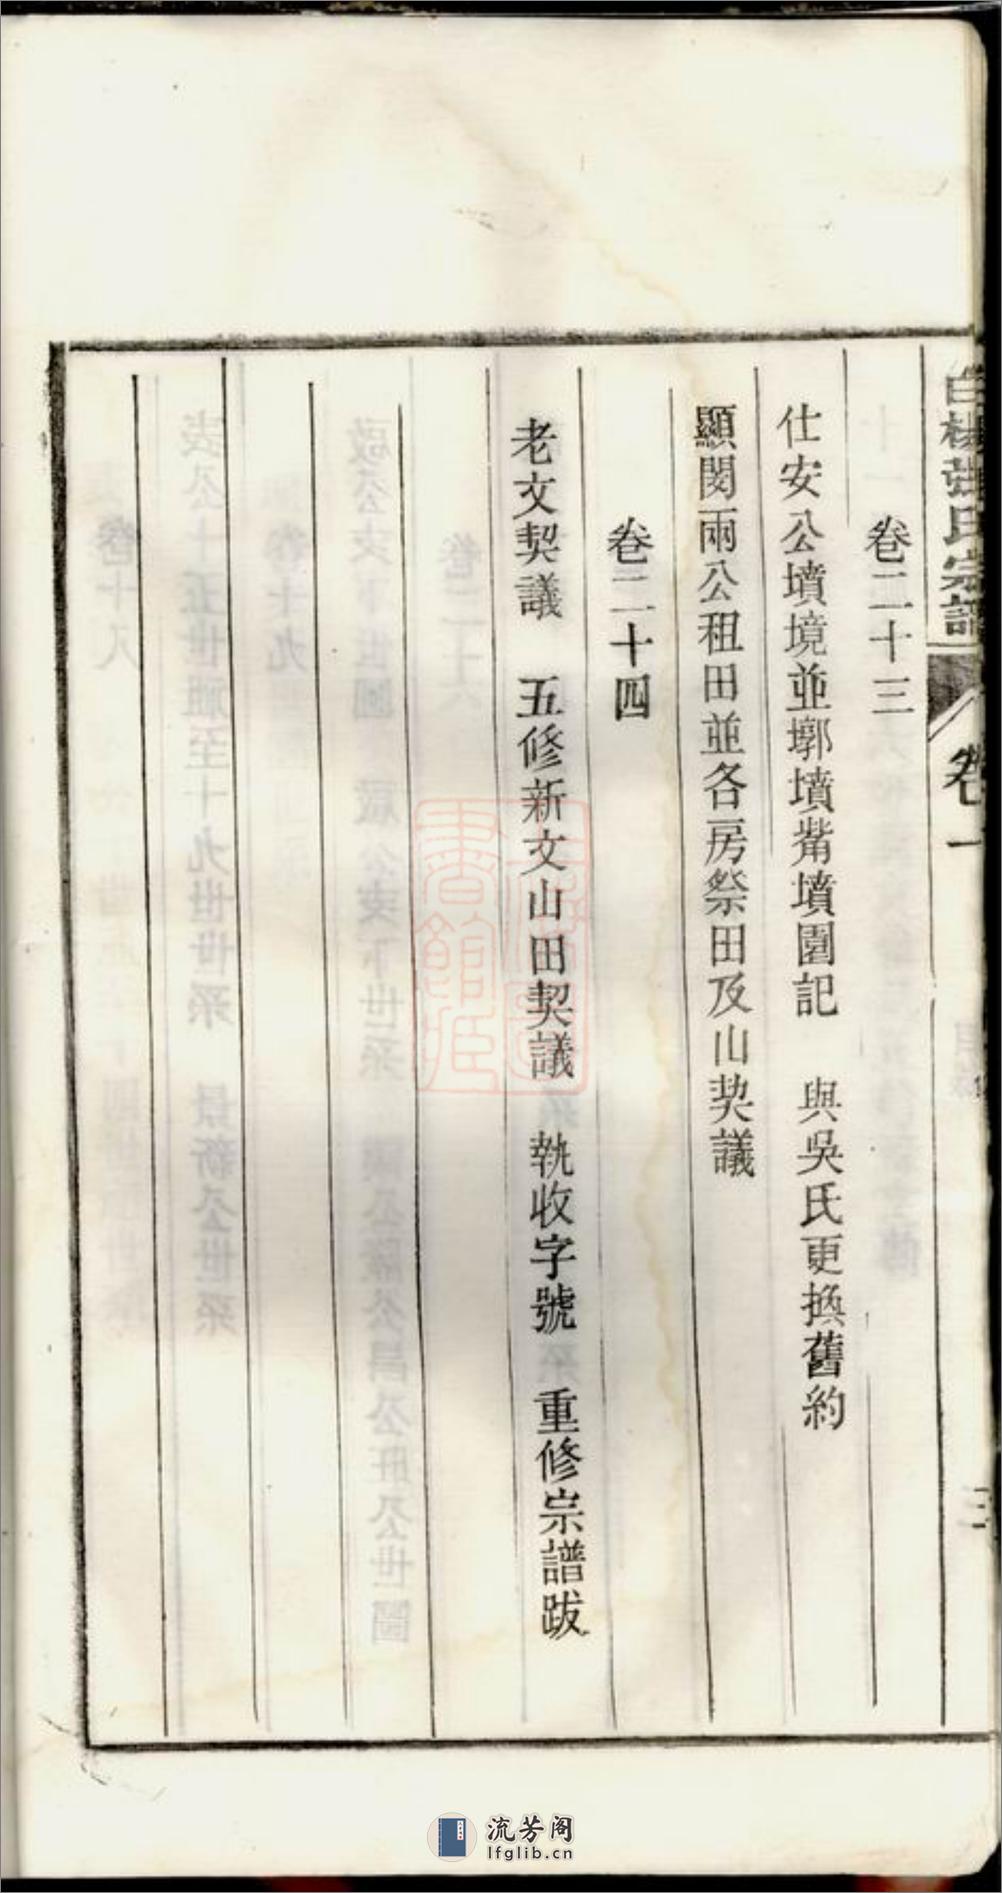 白楊張氏宗譜 卷一
卷二十三
仕安公墳境並廓墳觜墳園記 與吳氏更換舊約
顯閔兩公租田並各房祭田及山契議
卷二十四
老文契議 五修新文山田契議 執收字號 重修宗譜跋
流芳阁
lfglib.cn